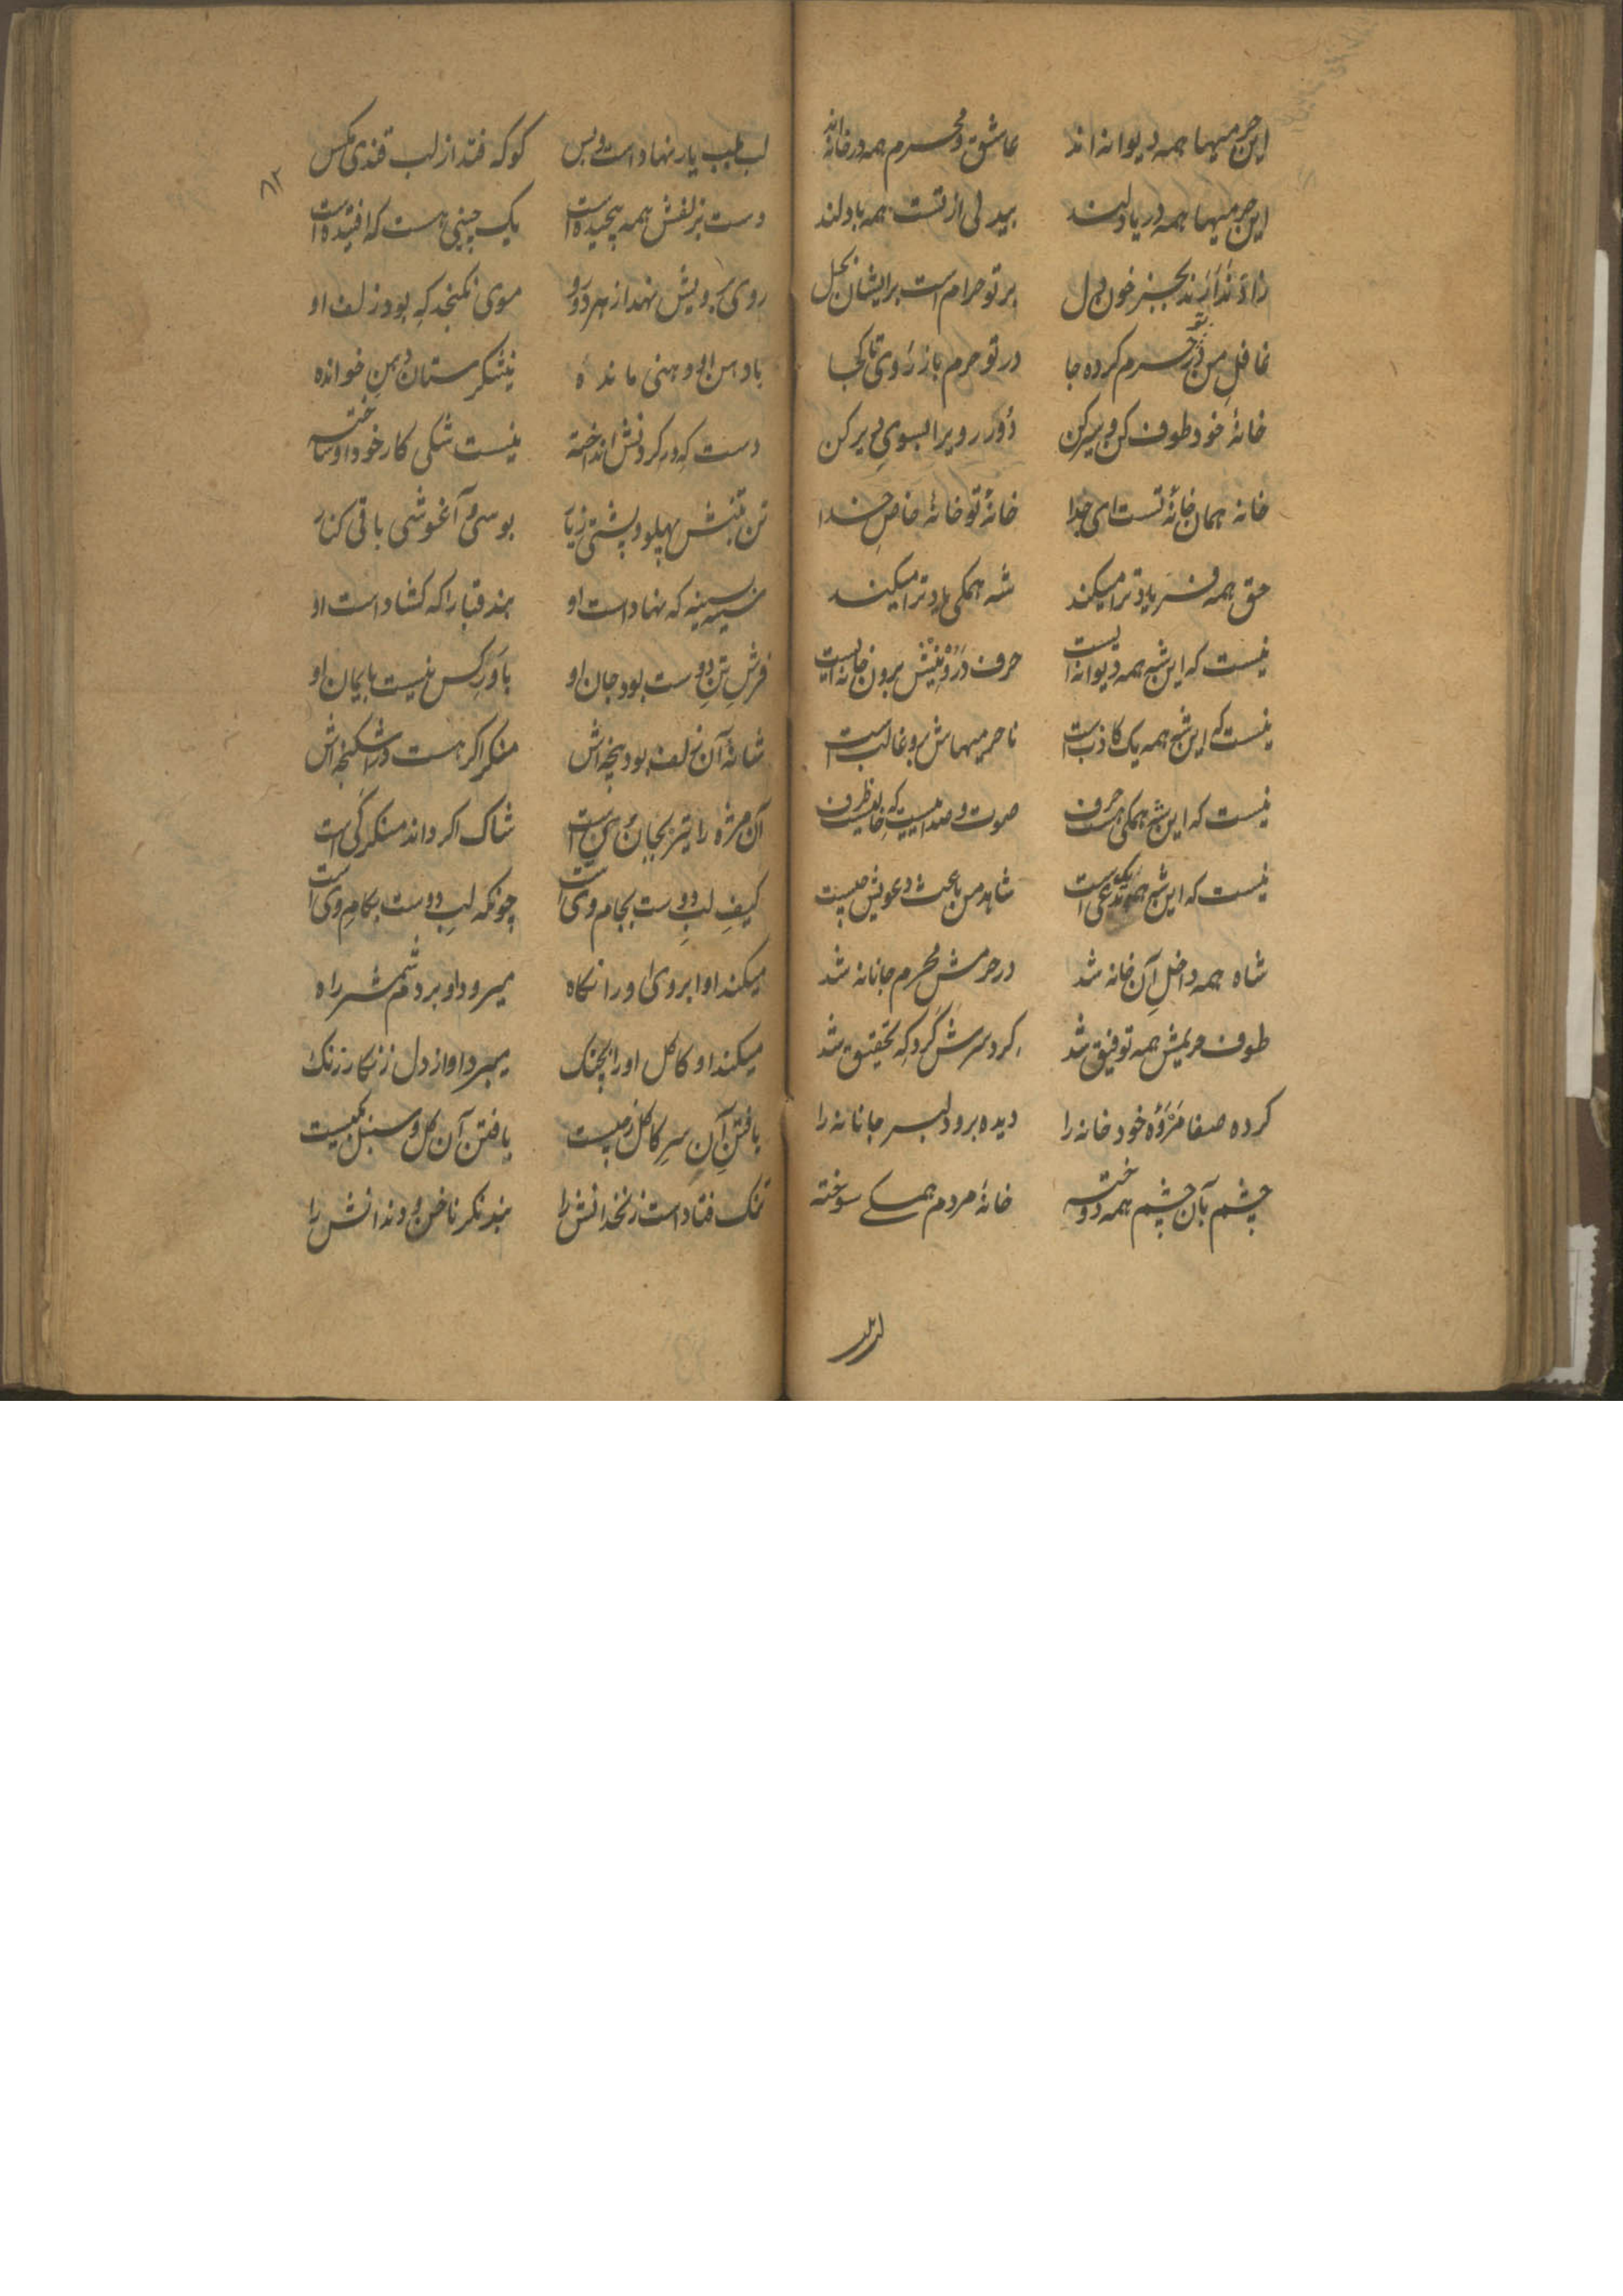 این حرمیها همه دیوانه اند عاشق و محرم همه در خانه اند
این حرمیها همه دریا دلند بیدلی از تست همه با دلند
زاد ندارند بجز خون دل بر تو حرام است بر ایشان بحل
غافل من در حرم کرده جا در تو حرم باز روی تا کجا
خانهٔ خود طوف کن و سیر کن دور رو یرا بسوی دیر کن
خانه همان خانهٔ تست ای خدا خانهٔ تو خانهٔ خاص خدا
حق همه فریاد ترا میکند شه همکی یاد ترا میکند
نیست که این شه همه دیوانه ایست حرف درونیش برون خانه ایست
نیست که این شه همه یک کاذب است نا حرمیهاش برو غالب است
نیست که این شه همکی حرف هست صوت و صدا نیست که خالیست ظرف
نیست که این شه همه یک مدعی است شاهد من باعث دعویش چیست
شاه همه داخل آن خانه شد در حرمش محرم جانانه شد
طوف حریمش همه توفیق شد کرد سرش کرد که تحقیق شد
کرده صفا مروه خود خانه را دیده برو دلبر جانانه را
چشم بآن چشم همه دوخته خانهٔ مردم همکی سوخته
لب بلب یار نهاد است و بس کو که فتد از لب قندی مکس
دست بزلفش همه پیچیده است یک چینی هست که افتیده است
روی برویش نهد از هر دو رو موی نکنجد که بود زلف او
با دهن او دهنی مانده نیشکرستان دهن خوانده
دست که در کردنش انداخته نیست شکی کار خود او ساخته
تن بتنش پهلو و پشتی زیار بوسی و آغوشی باقی کنار
سینه بسینه که نهاد است او بند قبا را که کشاد است او
فرش تن دوست بود جان او باور کس نیست بایمان او
شانهٔ آن زلف بود پنجه اش منکر اکر هست در اشکنجه اش
آن مژه را تیز بجان وی است شاک اکر داند منکر کی است
کیف لب دوست بجام وی است چونکه لب دوست بکام وی است
میکند او ابروی او را نکاه میرود او بر دم شمشیر راه
میکند او کاکل او را بچنک میبرد او از دل زنکار زنک
یافتن آن سر کاکل ز چیست یافتن آن کل و سنبل ز کیست
تنک فتاد است زنخدانش را بند نکر ناخن و دندانش را
۸۲
لب بلب